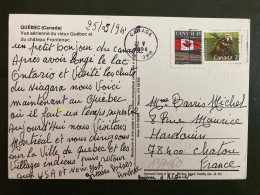 QUÉBEC (Canada)
Vue aérienne du vieux Québec et
du château Frontenac.
25/05/94
un petit bonjour du Canada
Après avoir longé le lac
Ontario et visité les chutes
du Niagara nous voici
maintenant au Québec
où il fait un temps superbe
Aujourd'hui nous visitons
Montréal et nous dirigeons
sur la ville de Québec et les
villages indiens puis retour
aux USA et New York.
CANADA
1994
CANADA
2
Mme Davis Michel
9 Rue Maurice
Hardouin
78400 Chatou
France